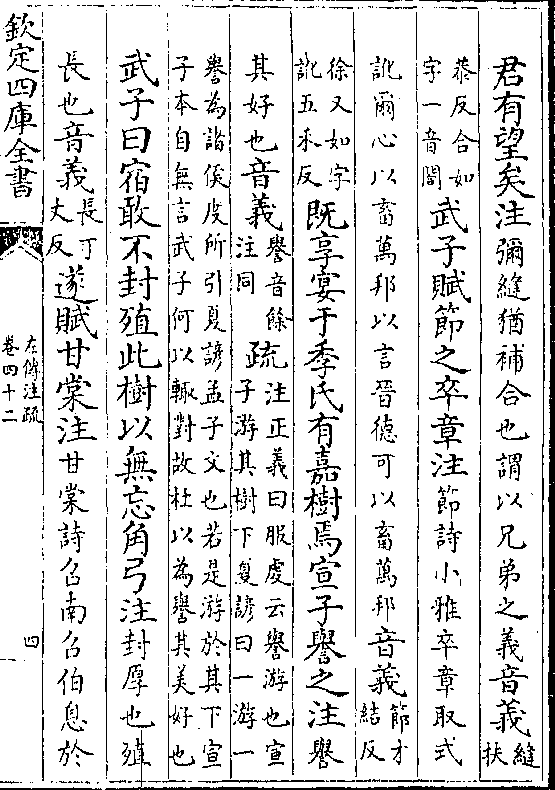 君有望矣注彌縫猶補合也謂以兄弟之義音義縫扶
恭反合如字一音閤武子賦節之卒章注節詩小雅卒章取式
訛爾心以畜萬邦以言晉德可以畜萬邦音義節才結反
徐又如字訛五禾反既享宴于季氏有嘉樹焉宣子譽之注譽
其好也音義譽音餘注同疏注正義曰服虔云譽游也宣子游其樹下夏諺曰一游一
譽為諸侯度所引夏諺孟子文也若是游於其下宣子本自無言武子何以輙對故杜以為譽其美好也
武子曰宿敢不封殖此樹以無忘角弓注封厚也殖
長也音義長可丈反遂賦甘棠注甘棠詩召南召伯息於
欽定四庫全書
左傳注疏
卷四十二
四